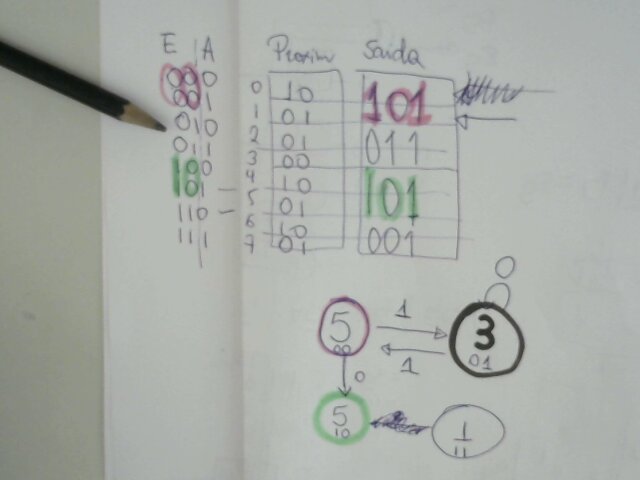 E A Proxim Saída
00 0 0 10 101
00 1 1 01
01 0 2 01 011
01 1 3 00
10 0 4 10 101
10 1 5 01
11 0 6 10 001
11 1 7 01
0
5 00 1 3 01
1
0
5 10 1 11